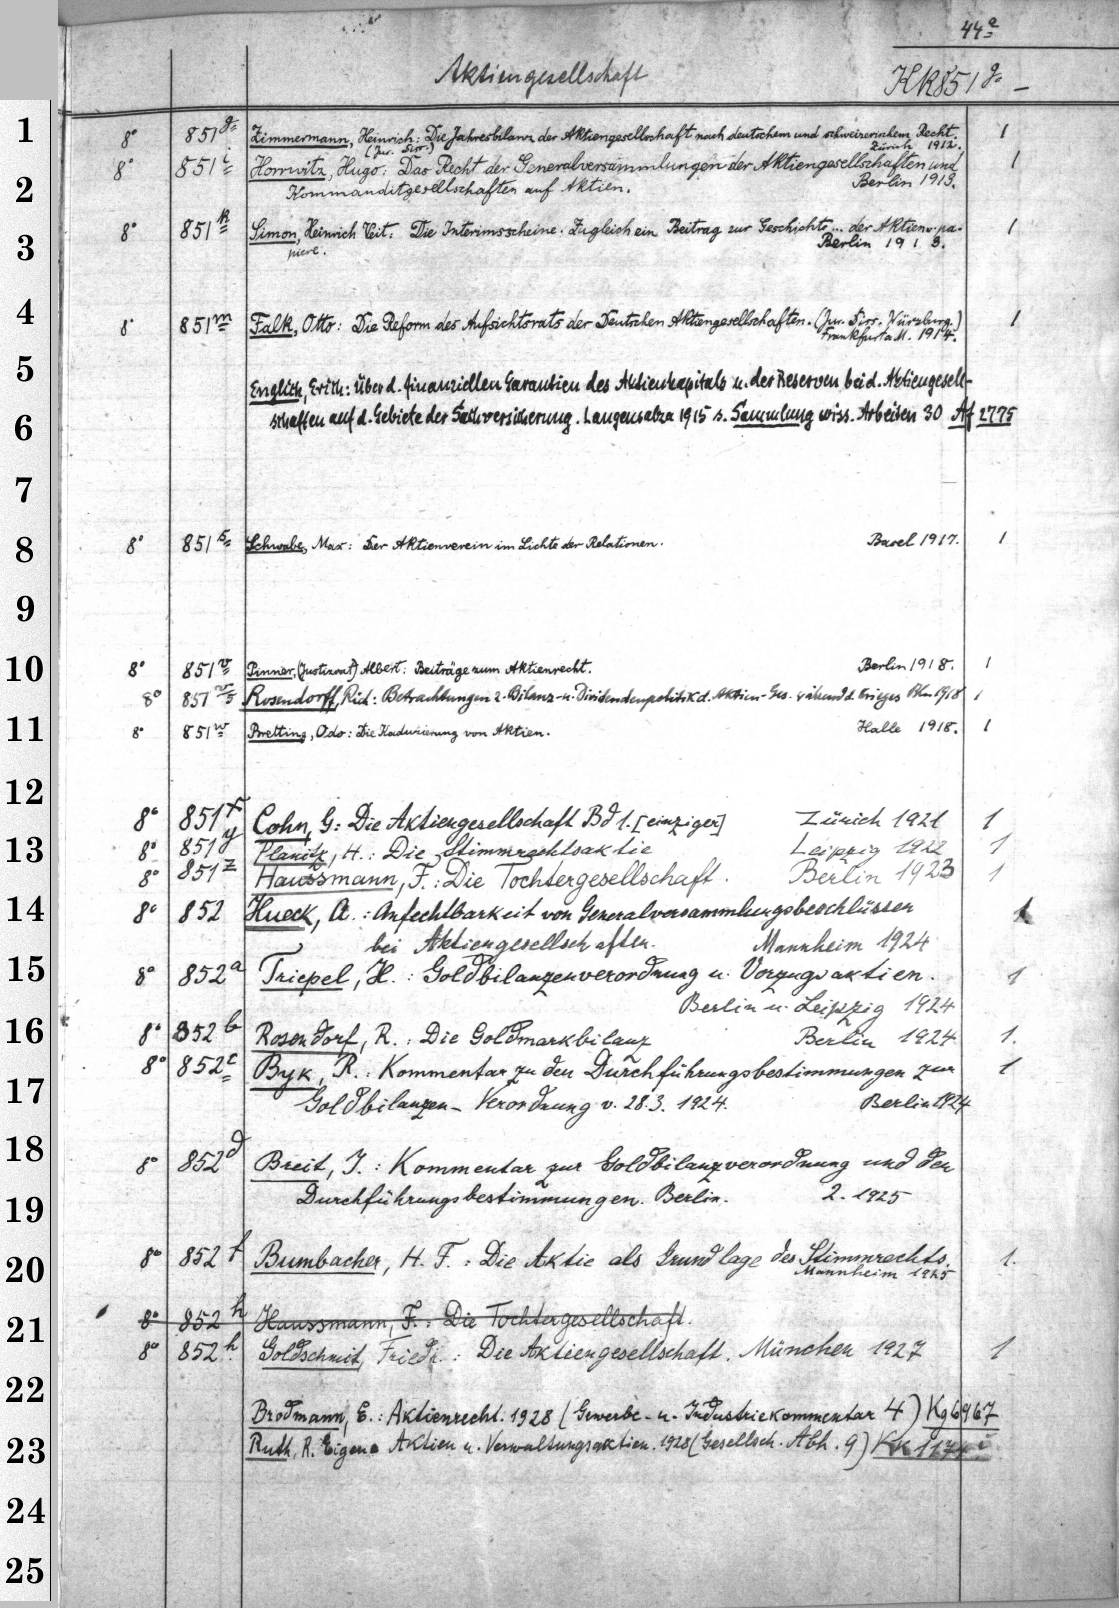 44a
Aktiengesellschaft KK851g-
1
8° 851g Zimmermann, Heinrich: Die Jahresbilanz der Aktiengesellschaft nach deutschem und schweizerischem Recht. 1
(Jur. Diss.) Zürich 1912.
8° 851i Horrwitz, Hugo: Das Recht der Generalversammlungen der Aktiengesellschaften und 1
2
Kommanditgesellschaften auf Aktien. Berlin 1913.
8° 851k Simon, Heinrich Veit: Die Interimsscheine. Zugleich ein Beitrag zur Geschichte... der Aktienpa- 1
3
piere. Berlin 1913.
4
8° 851m Falk, Otto: Die Reform des Aufsichtsrats der Deutschen Aktiengesellschaften. (Jur. Diss. Würzburg.) 1
Frankfurt a M. 1914.
5
Englich, Erich: Über d. finanziellen Garantien des Aktienkapitals u. der Reserven bei d. Aktiengesell-
6
schaften auf d. Gebiete der Sachversicherung. Langensalza 1915 s. Sammlung wiss. Arbeiten 30 Af 2775
7
8
8° 851s Schwabe, Max: Der Aktienverein im Lichte der Relationen. Basel 1917. 1
9
10
8° 851v Pinner, (Justizrat) Albert: Beiträge zum Aktienrecht. Berlin 1918. 1
8° 851 Rosendorff, Rich: Betrachtungen z. Bilanz- u. Dividendenpolitik d. Aktien-Ges. während d. Krieges Bln. 1918 1
11
8° 851w Bretting, Odo: Die Kaduzierung von Aktien. Halle 1918. 1
12
8° 851x Cohn, G: Die Aktiengesellschaft Bd 1. [einziger] Zürich 1921 1
13
8° 851y Planitz, H.: Die Stimmrechtsaktie Leipzig 1922 1
8° 851z Haussmann, F.: Die Tochtergesellschaft. Berlin 1923 1
14
8° 852 Hueck, A.: Anfechtbarkeit von Generalversammlungsbeschlüssen 1
bei Aktiengesellschaften. Mannheim 1924
15
8° 852a Triepel, H.: Goldbilanzenverordnung u. Vorzugsaktien. 1
Berlin u. Leipzig 1924
16
8° 852b Rosendorf, R.: Die Goldmarkbilanz Berlin 1924 1.
8° 852c Byk, R.: Kommentar zu den Durchführungsbestimmungen zur 1
17
Goldbilanzen-Verordnung v. 28.3. 1924. Berlin 1924
18
8° 852d Breit, J.: Kommentar zur Goldbilanzverordnung und den
19
Durchführungsbestimmungen. Berlin. 2. 1925
20
8° 852f Bumbacher, H. F.: Die Aktie als Grundlage des Stimmrechts. 1.
Mannheim 1925
21
8° 852h Haussmann, F.: Die Tochtergesellschaft.
8° 852h. Goldschmit, Friedr.: Die Aktiengesellschaft. München 1927 1
22
Brodmann, E.: Aktienrecht. 1928 (Gewerbe- u. Industriekommentar 4) Kg 6967
23
Ruth, R. Eigene Aktien u. Verwaltungsaktien. 1928 (Gesellsch. Abh. 9) KK
24
25